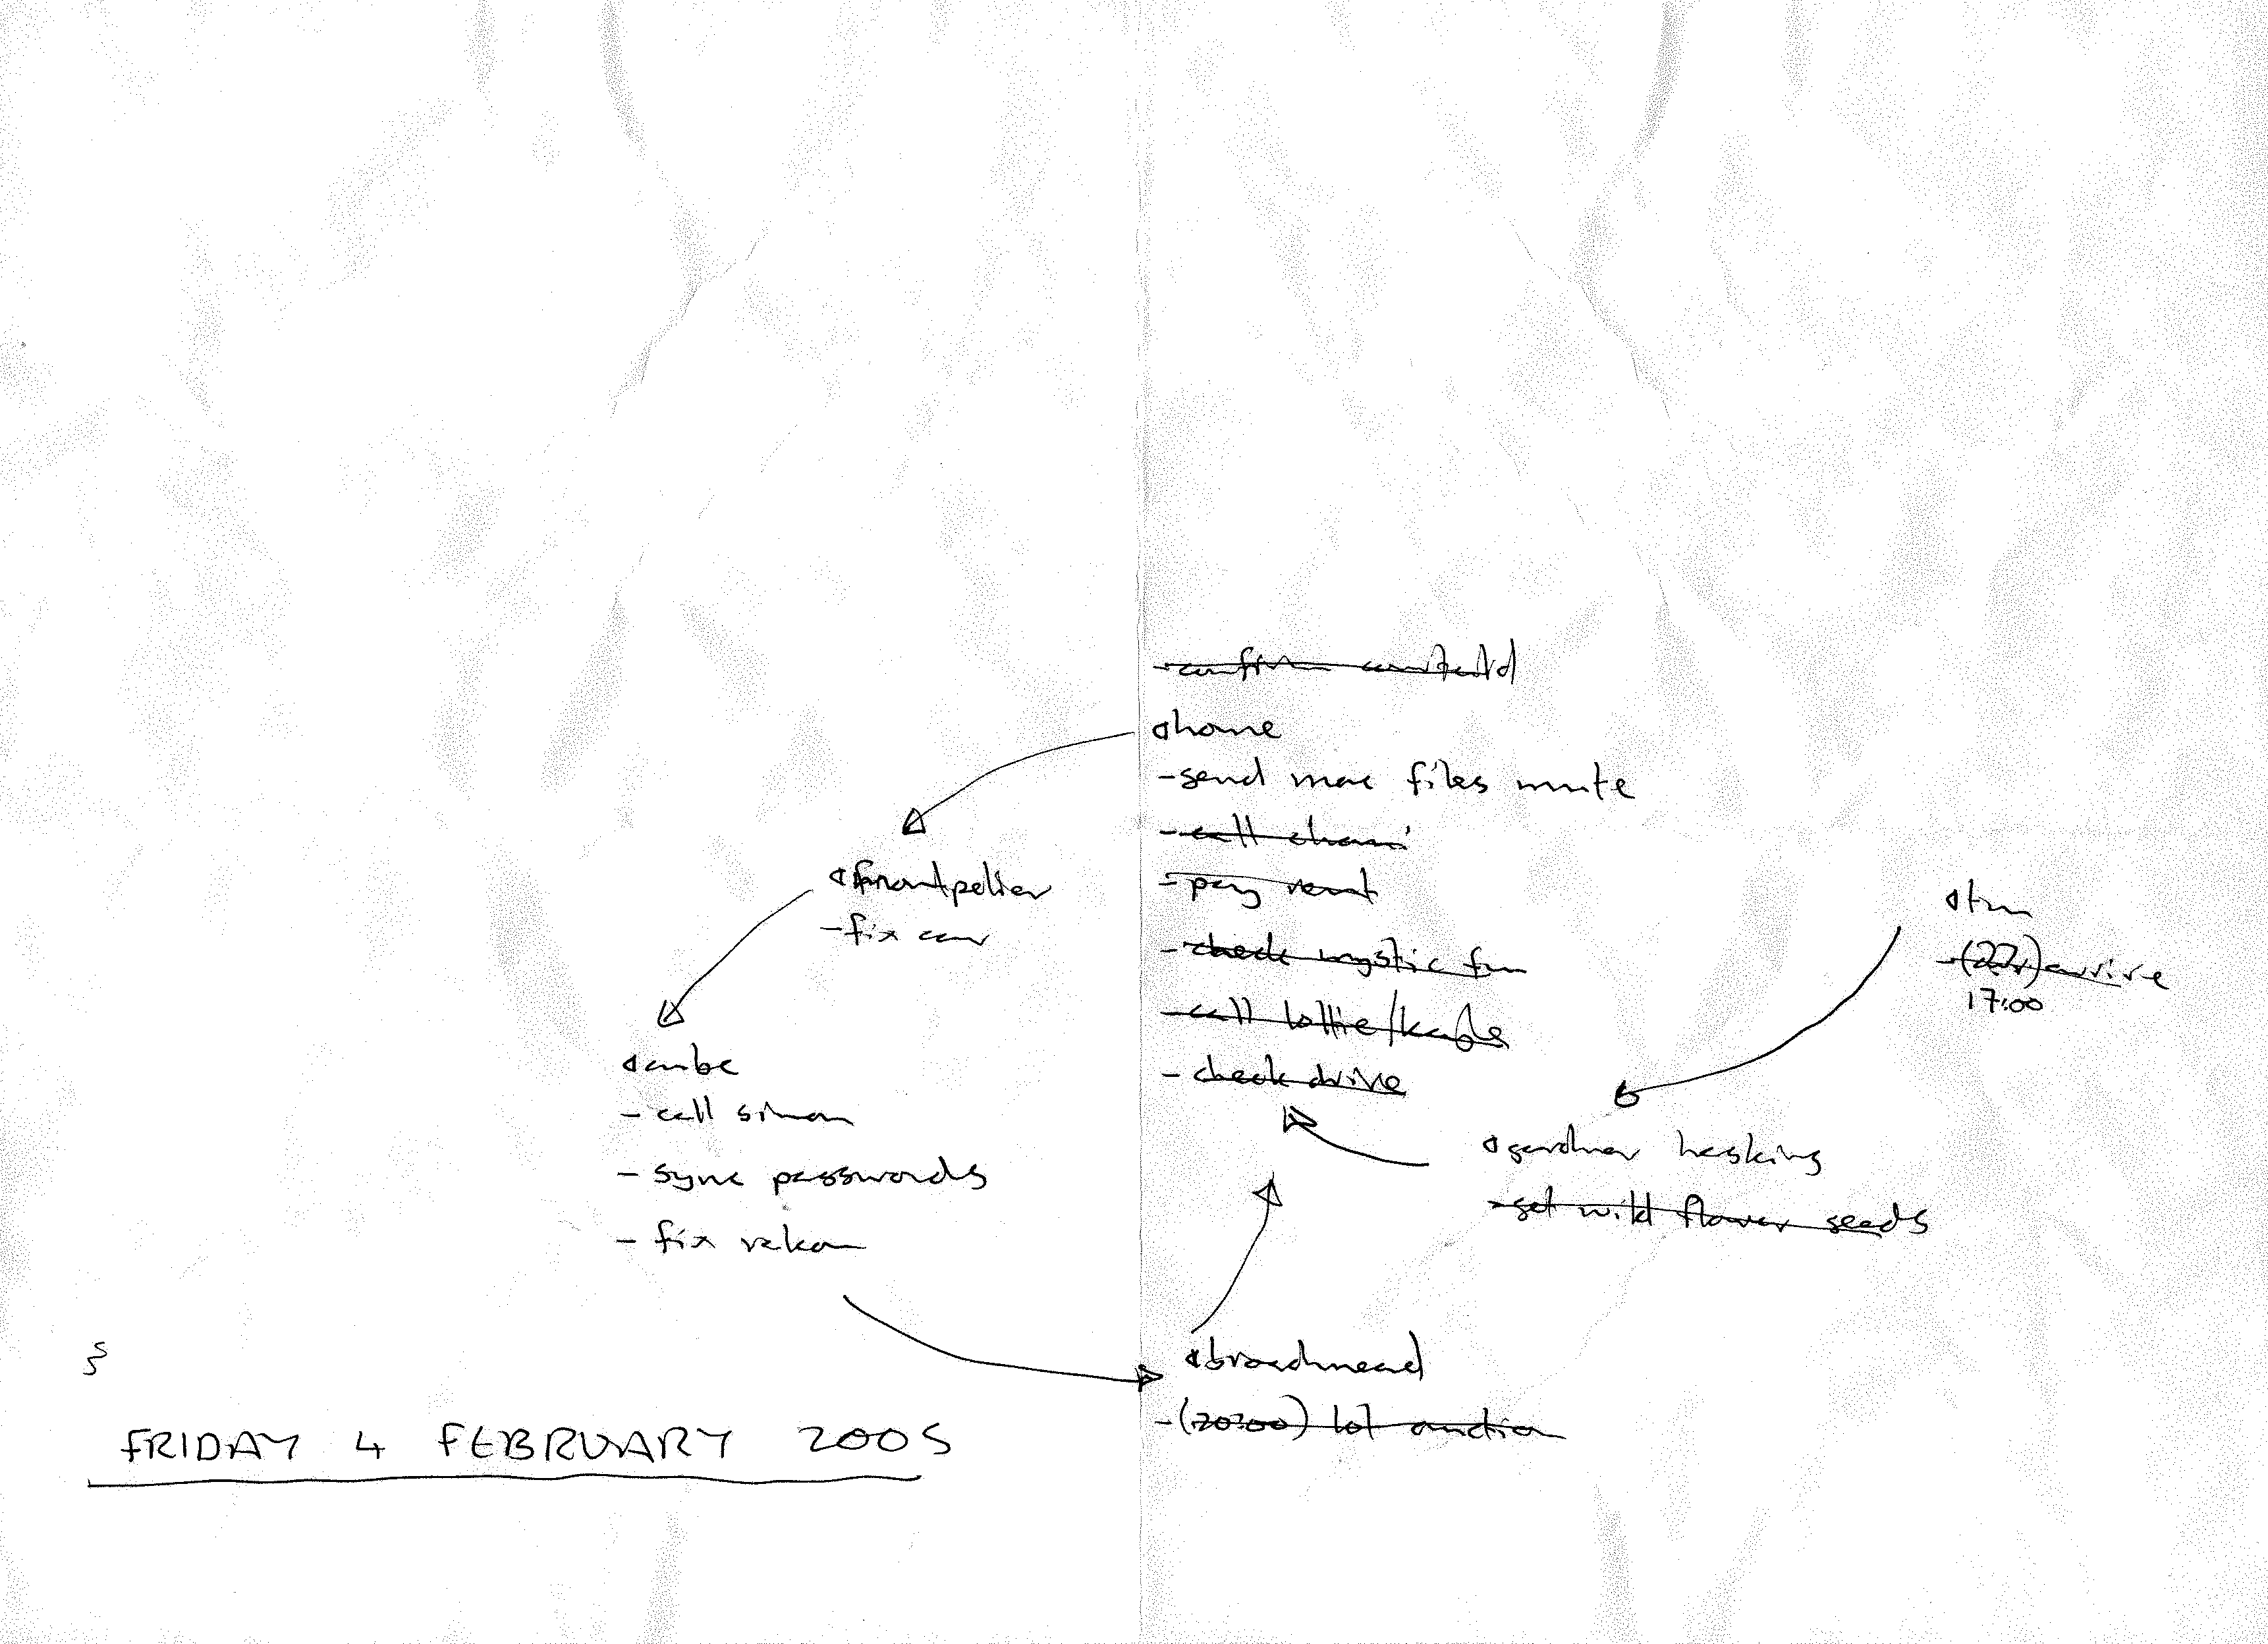 home
-send mac files mute
-call
-pay rent
-check mystic
-call lottie/
-check drive
montpelier
-fix car
cube
-call simon
-sync passwords
-fix
(22) arrive
17:00
gardner haskins
-get wild flower seeds
broadmead
-(20:00) lot auction
FRIDAY 4 FEBRUARY 2005